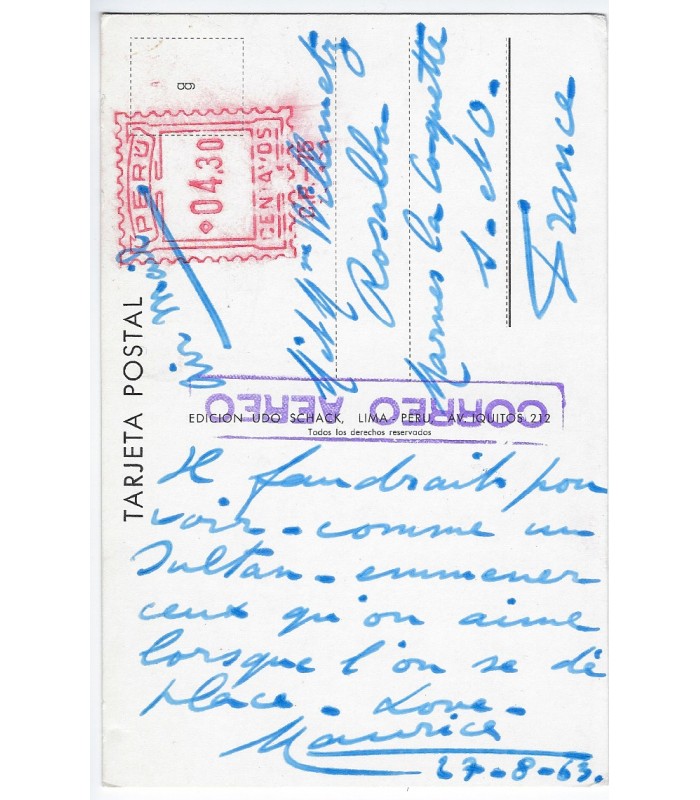 TARJETA POSTAL
8
PERÚ
04.30
CENTAVOS
Air Mail
Rosalba
Marnes la Coquette
S. et O.
France
CORREO AEREO
EDICION UDO SCHACK, LIMA PERU, AV. IQUITOS 212
Todos los derechos reservados
Il faudrait pou
voir - comme un
Sultan - emmener
ceux qu'on aime
lorsque l'on se dé
place - Love -
Maurice
27-8-63.